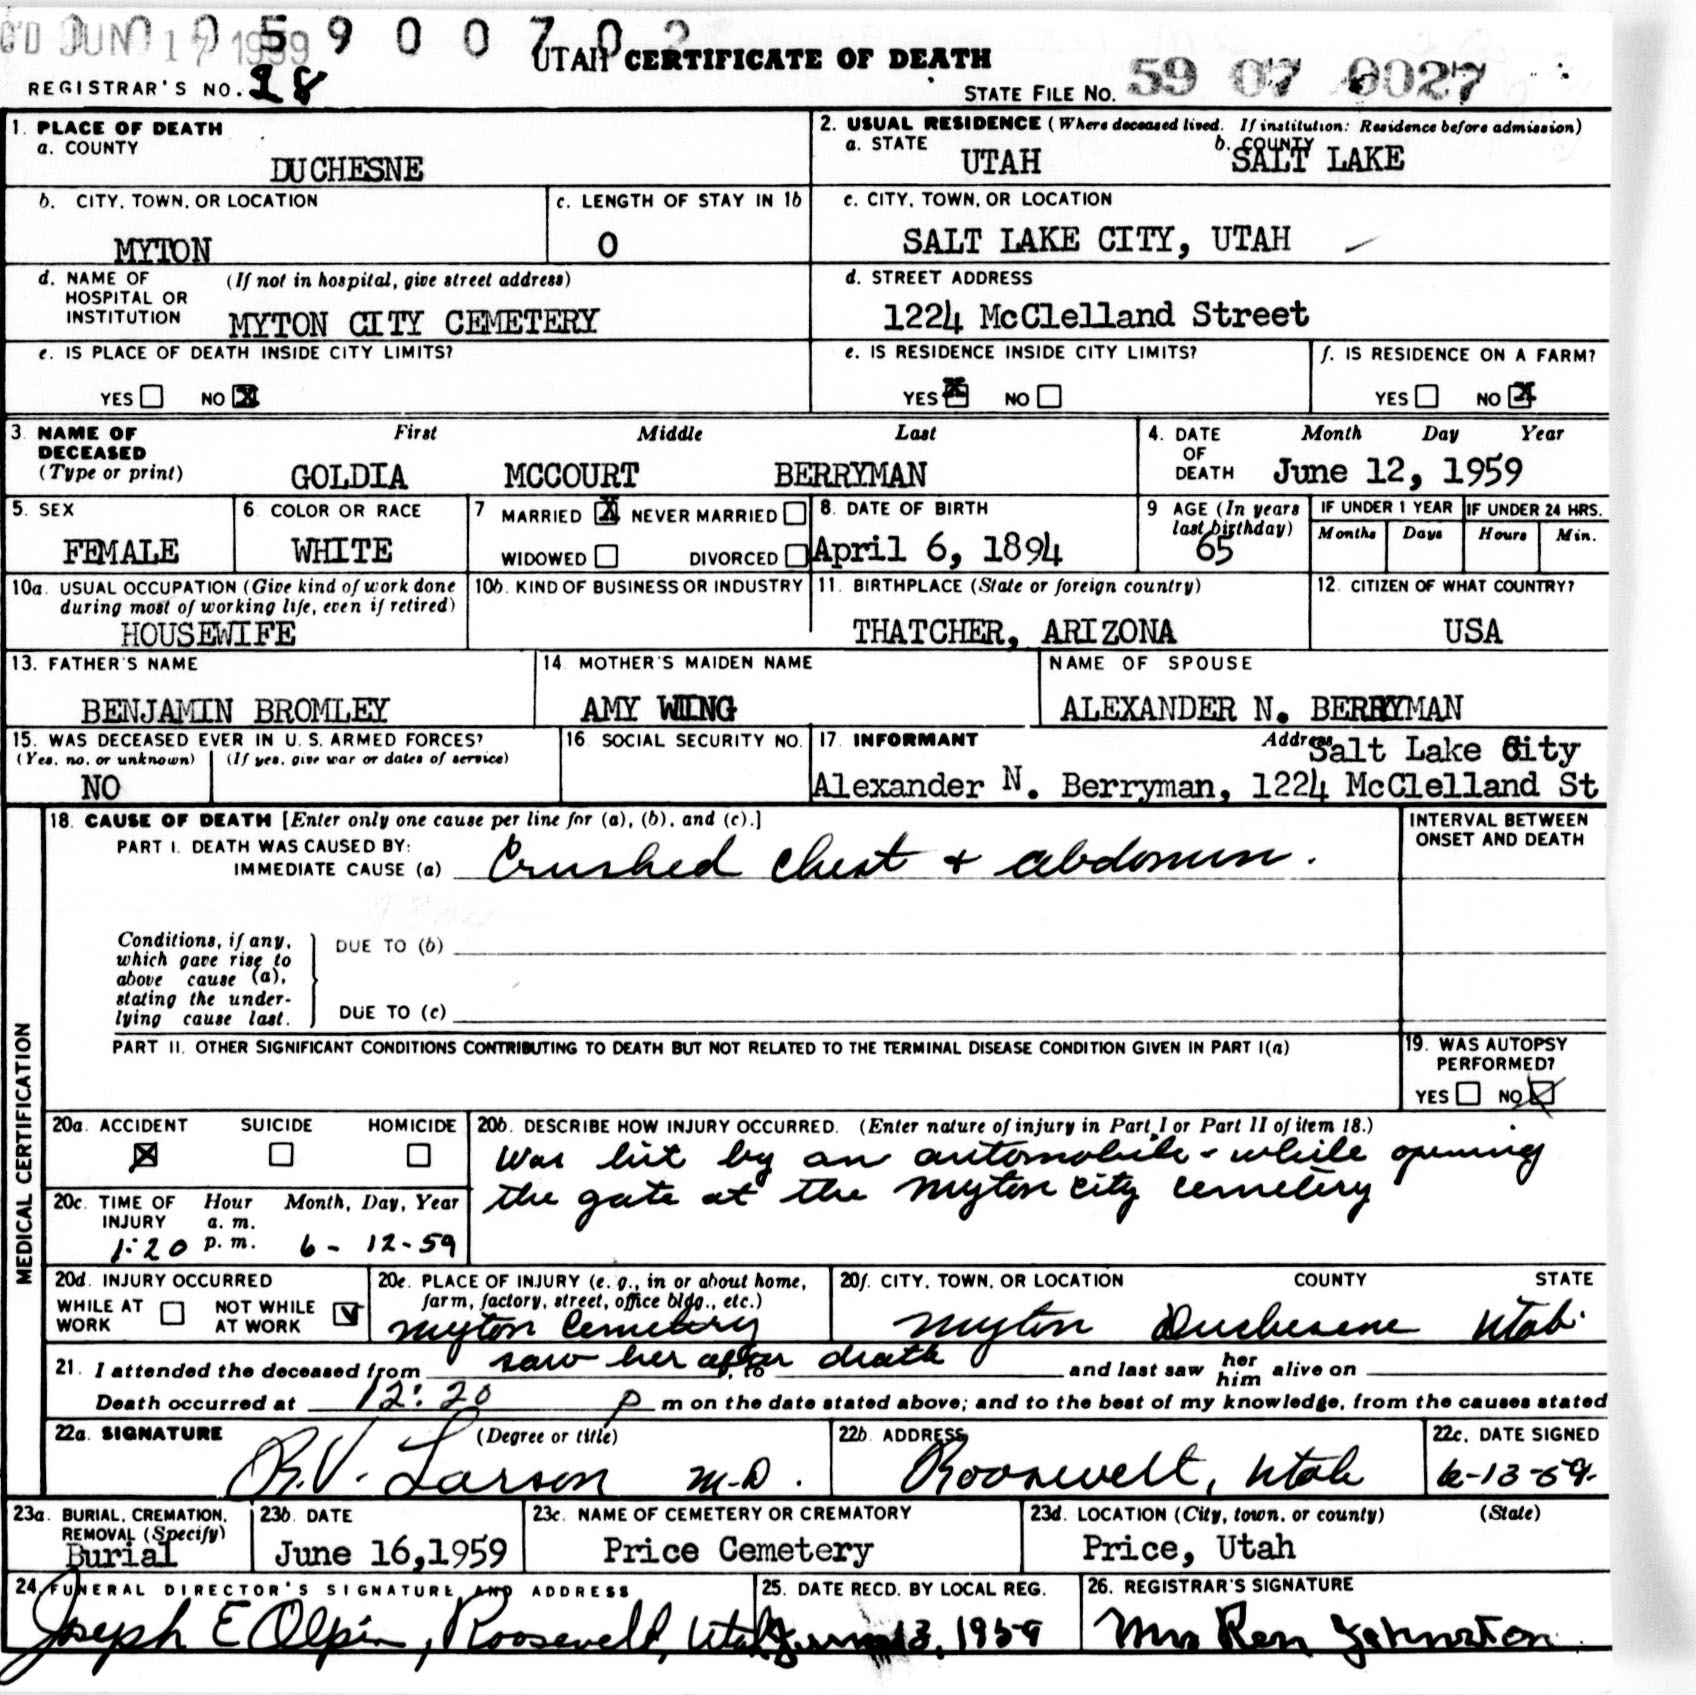 REC'D JUN 17 1959 0 5 9 0 0 7 0 2
UTAH CERTIFICATE OF DEATH
REGISTRAR'S NO. 28
STATE FILE NO. 59 07 0027
1. PLACE OF DEATH
a. COUNTY
DUCHESNE
2. USUAL RESIDENCE (Where deceased lived. If institution: Residence before admission)
a. STATE UTAH b. COUNTY SALT LAKE
b. CITY, TOWN, OR LOCATION
MYTON
c. LENGTH OF STAY IN 1b
0
c. CITY, TOWN, OR LOCATION
SALT LAKE CITY, UTAH
d. NAME OF (If not in hospital, give street address)
HOSPITAL OR
INSTITUTION MYTON CITY CEMETERY
d. STREET ADDRESS
1224 McClelland Street
e. IS PLACE OF DEATH INSIDE CITY LIMITS?
YES NO X
e. IS RESIDENCE INSIDE CITY LIMITS?
YES X NO
f. IS RESIDENCE ON A FARM?
YES NO X
3. NAME OF DECEASED (Type or print)
First Middle Last
GOLDIA MCCOURT BERRYMAN
4. DATE OF DEATH
Month Day Year
June 12, 1959
5. SEX
FEMALE
6. COLOR OR RACE
WHITE
7 MARRIED X NEVER MARRIED
WIDOWED DIVORCED
8. DATE OF BIRTH
April 6, 1894
9 AGE (In years last birthday)
65
IF UNDER 1 YEAR
Months Days
IF UNDER 24 HRS.
Hours Min.
10a. USUAL OCCUPATION (Give kind of work done
during most of working life, even if retired)
HOUSEWIFE
10b. KIND OF BUSINESS OR INDUSTRY
11. BIRTHPLACE (State or foreign country)
THATCHER, ARIZONA
12. CITIZEN OF WHAT COUNTRY?
USA
13. FATHER'S NAME
BENJAMIN BROMLEY
14. MOTHER'S MAIDEN NAME
AMY WING
NAME OF SPOUSE
ALEXANDER N. BERRYMAN
15. WAS DECEASED EVER IN U. S. ARMED FORCES?
(Yes, no, or unknown) (If yes, give war or dates of service)
NO
16. SOCIAL SECURITY NO.
17. INFORMANT Address Salt Lake City
Alexander N. Berryman, 1224 McClelland St
MEDICAL CERTIFICATION
18. CAUSE OF DEATH [Enter only one cause per line for (a), (b), and (c).]
PART I. DEATH WAS CAUSED BY:
IMMEDIATE CAUSE (a) Crushed chest + abdomen.
INTERVAL BETWEEN
ONSET AND DEATH
Conditions, if any,
which gave rise to
above cause (a),
stating the under-
lying cause last.
DUE TO (b)
DUE TO (c)
PART II. OTHER SIGNIFICANT CONDITIONS CONTRIBUTING TO DEATH BUT NOT RELATED TO THE TERMINAL DISEASE CONDITION GIVEN IN PART I(a)
19. WAS AUTOPSY
PERFORMED?
YES NO X
20a. ACCIDENT SUICIDE HOMICIDE
X
20b. DESCRIBE HOW INJURY OCCURRED. (Enter nature of injury in Part I or Part II of item 18.)
Was hit by an automobile - while opening
the gate at the Myton city cemetery
20c. TIME OF INJURY
Hour Month, Day, Year
a. m.
1:20 p. m. 6 - 12-59
20d. INJURY OCCURRED
WHILE AT WORK NOT WHILE AT WORK
20e. PLACE OF INJURY (e. g., in or about home,
farm, factory, street, office bldg., etc.)
Myton Cemetery
20f. CITY, TOWN, OR LOCATION COUNTY STATE
Myton Duchesene Utah.
21. I attended the deceased from saw her after death, to and last saw her him alive on
Death occurred at 12:20 P m on the date stated above; and to the best of my knowledge, from the causes stated
22a. SIGNATURE (Degree or title)
R.V. Larson M.D.
22b. ADDRESS
Roosevelt, Utah
22c. DATE SIGNED
6-13-59.
23a. BURIAL, CREMATION,
REMOVAL (Specify)
Burial
23b. DATE
June 16,1959
23c. NAME OF CEMETERY OR CREMATORY
Price Cemetery
23d. LOCATION (City, town, or county) (State)
Price, Utah
24. FUNERAL DIRECTOR'S SIGNATURE AND ADDRESS
Joseph E Olpin, Roosevelt, Utah
25. DATE RECD. BY LOCAL REG.
June 13, 1959
26. REGISTRAR'S SIGNATURE
Mrs Ren Johnston